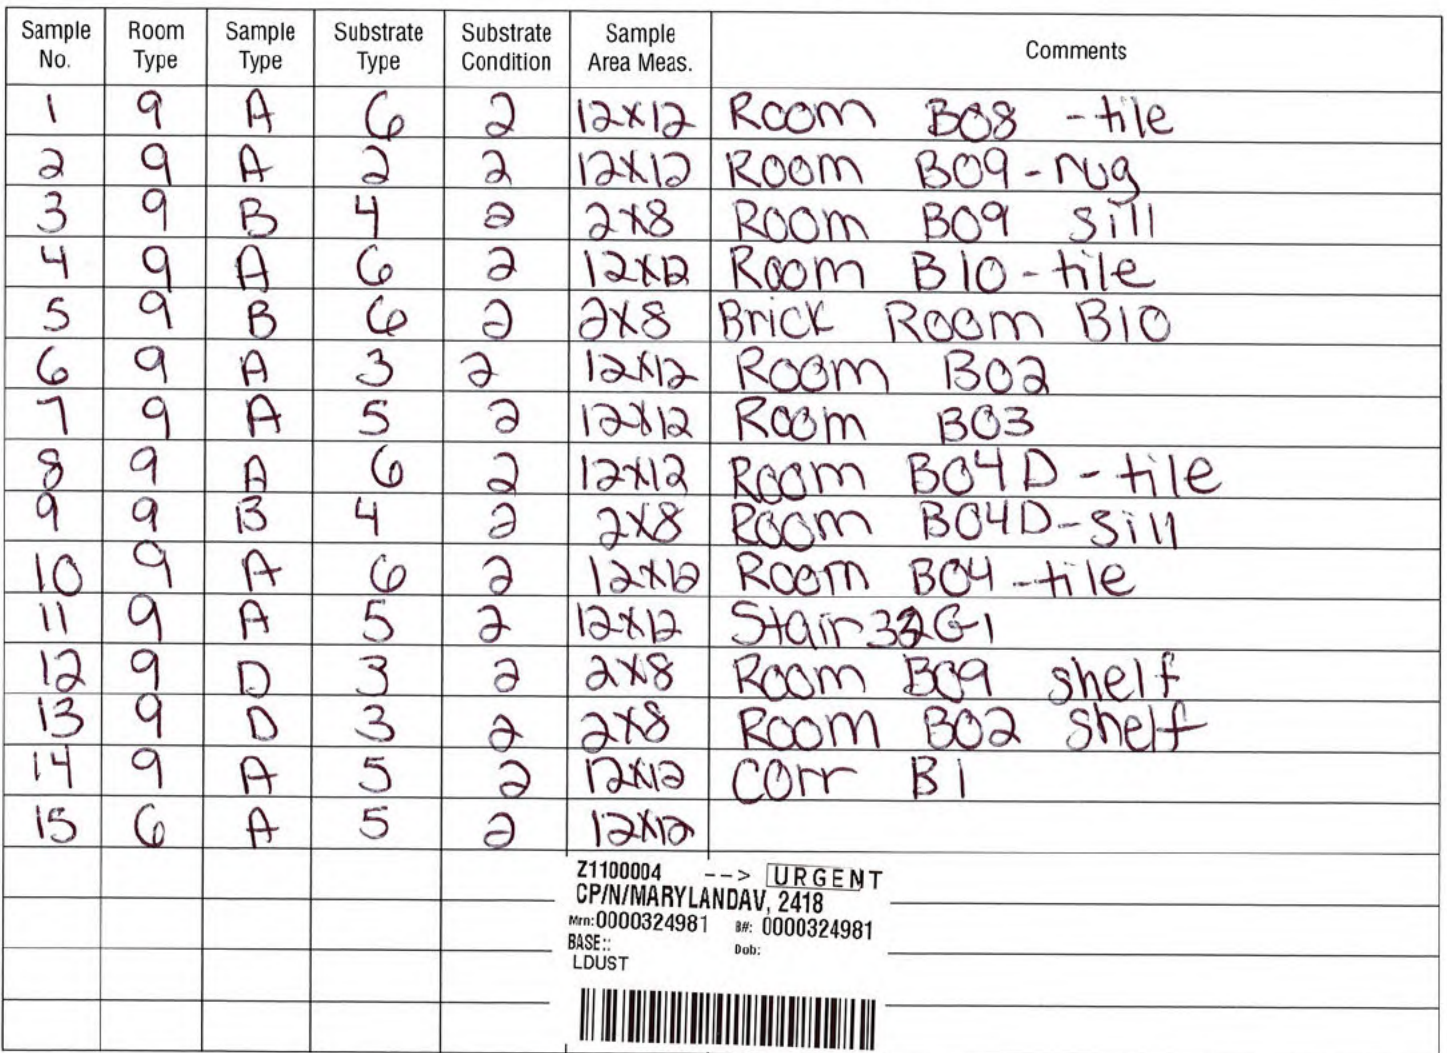 Sample No. Room Type Sample Type Substrate Type Substrate Condition Sample Area Meas. Comments
1 9 A 6 2 12x12 Room B08 -tile
2 9 A 2 2 12x12 Room B09-rug
3 9 B 4 2 2x8 Room B09 sill
4 9 A 6 2 12x12 Room B10-tile
5 9 B 6 2 2x8 Brick Room B10
6 9 A 3 2 12x12 Room B02
7 9 A 5 2 12x12 Room B03
8 9 A 6 2 12x12 Room B04D-tile
9 9 B 4 2 2x8 Room B04D-sill
10 9 A 6 2 12x12 Room B04-tile
11 9 A 5 2 12x12
12 9 D 3 2 2x8 Room B09 shelf
13 9 D 3 2 2x8 Room B02 shelf
14 9 A 5 2 12x12 Corr B1
15 6 A 5 2 12x12
Z1100004 --> URGENT
CP/N/MARYLANDAV, 2418
Mrn:0000324981 B#: 0000324981
BASE:: Dob:
LDUST